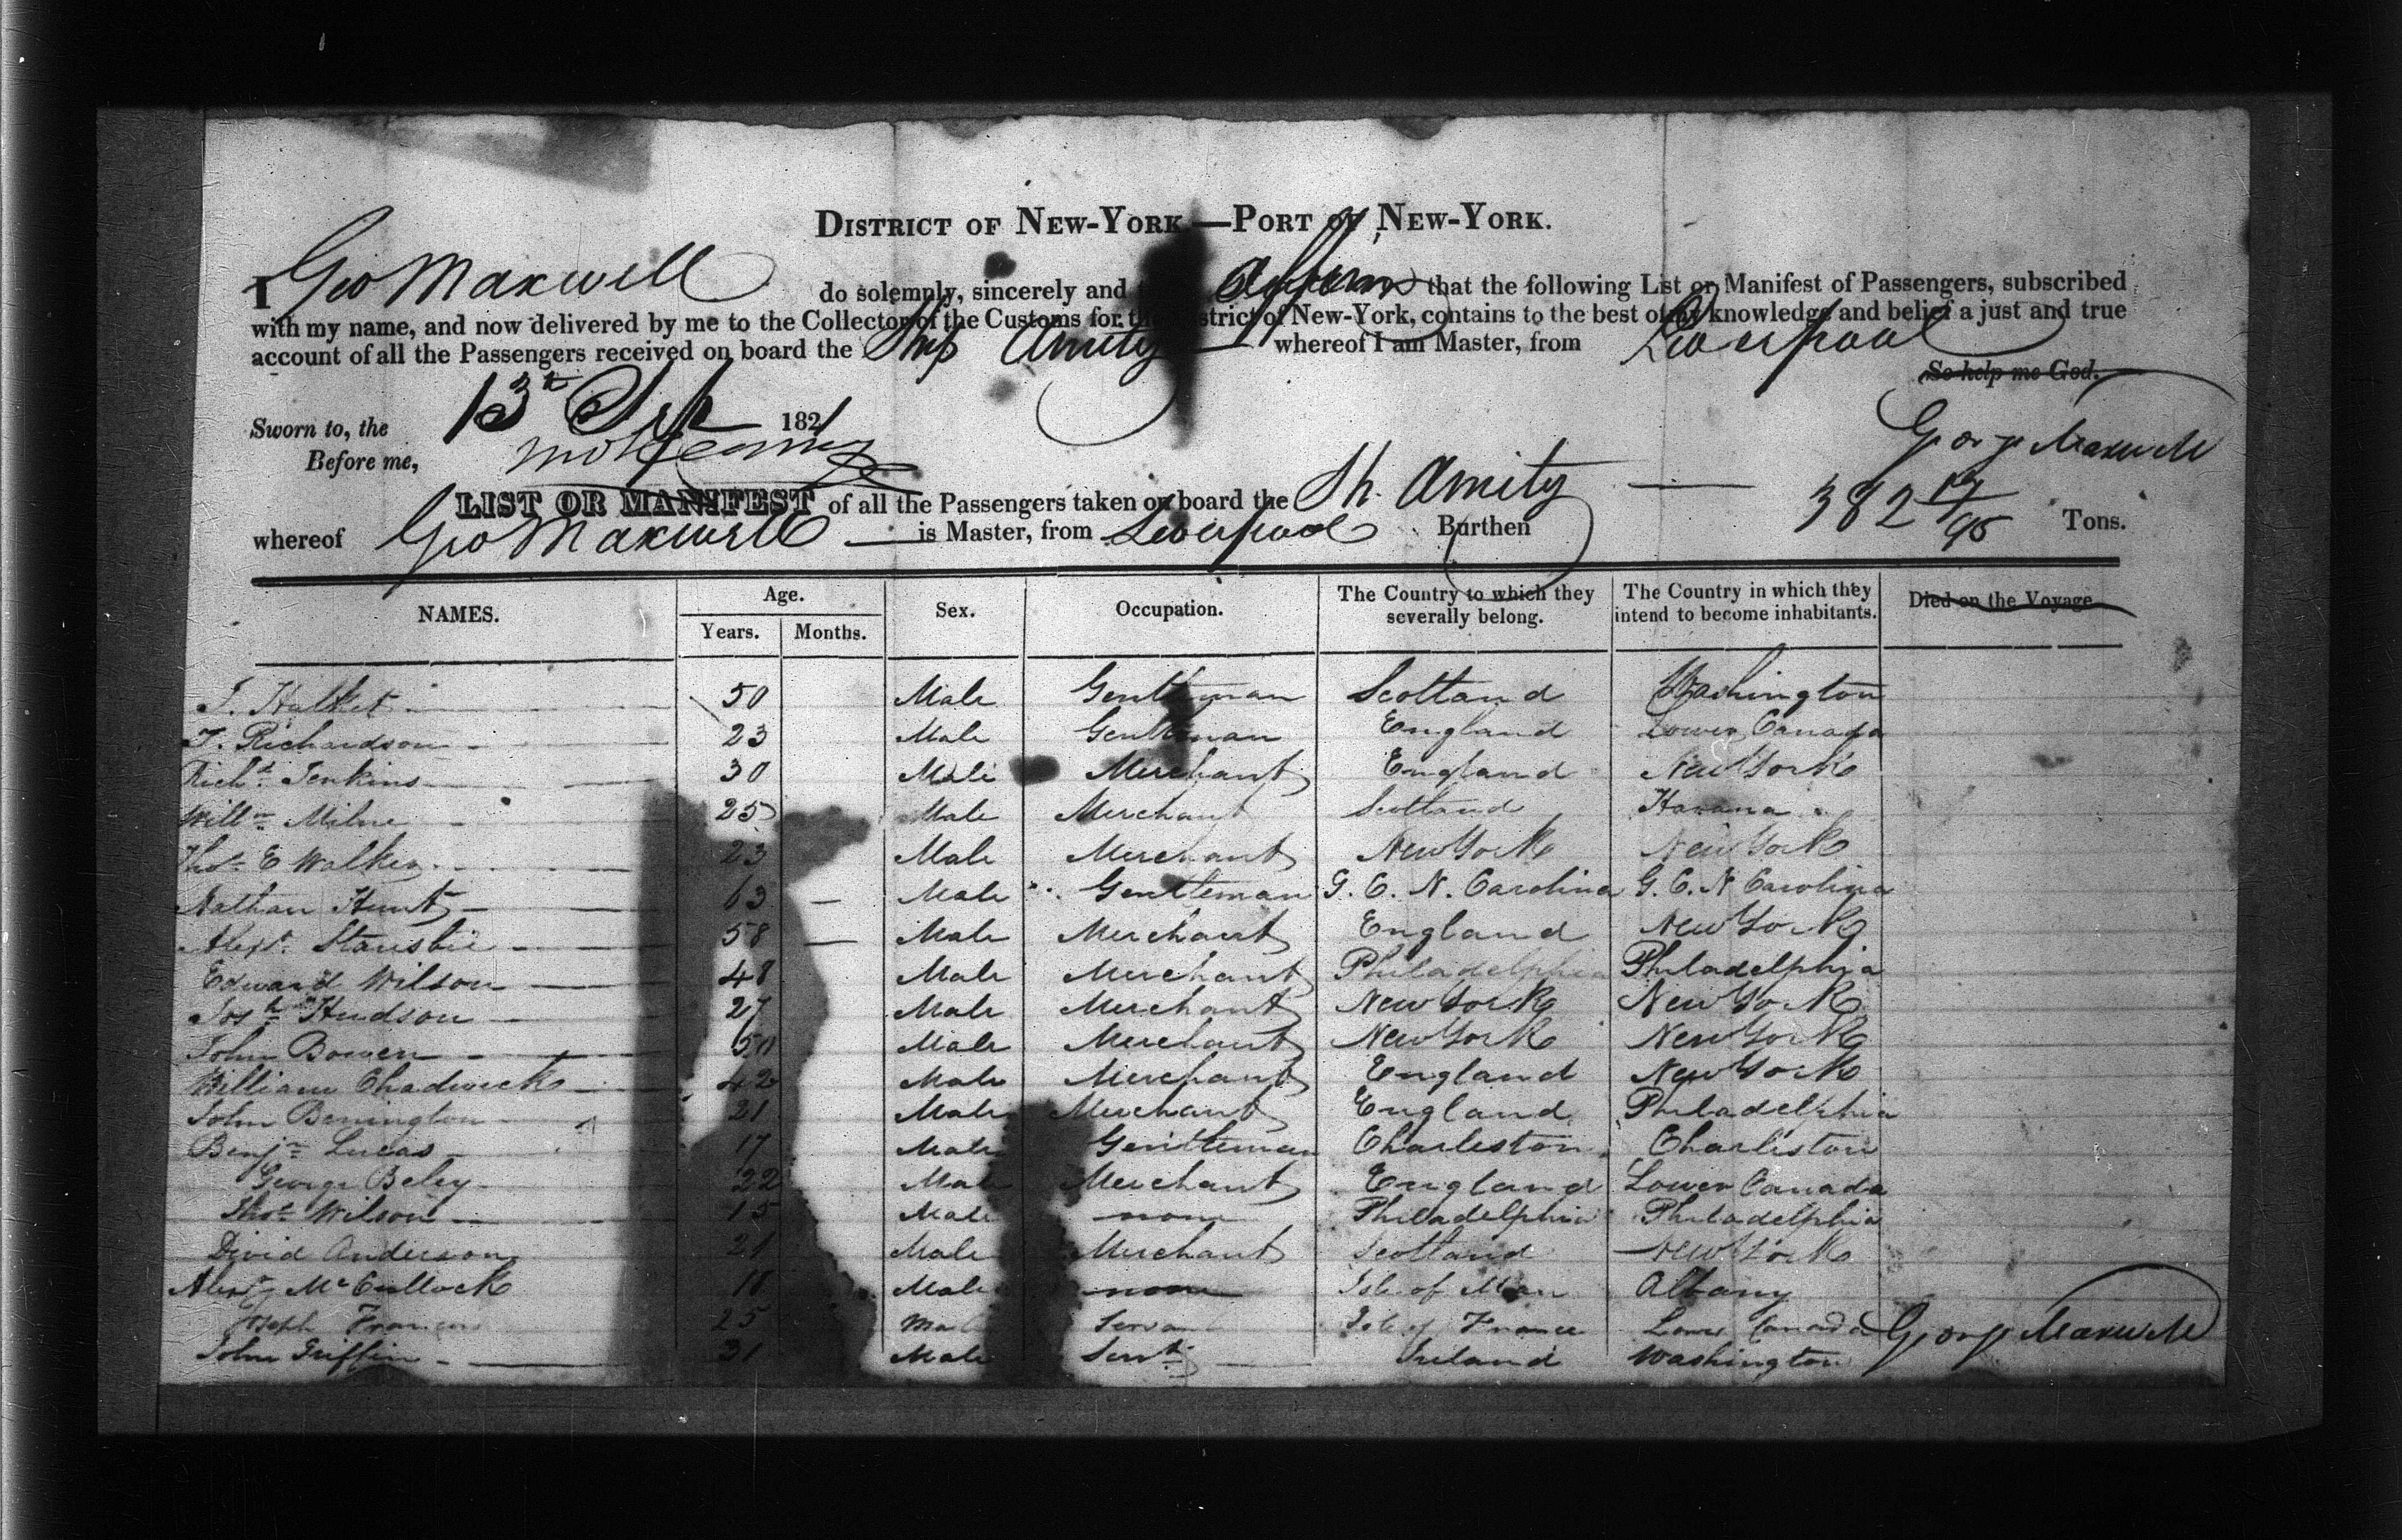 DISTRICT OF NEW-YORK—PORT OF NEW-YORK.
I Geo Maxwell do solemnly, sincerely and affirm that the following List or Manifest of Passengers, subscribed
with my name, and now delivered by me to the Collector of the Customs for the District of New-York, contains to the best of my knowledge and belief a just and true
account of all the Passengers received on board the Ship Amity whereof I am Master, from Liverpool
So help me God.
Sworn to, the 13th Sep 1821
George Maxwell
Before me,
LIST OR MANIFEST of all the Passengers taken on board the Sh. Amity
whereof Geo Maxwell is Master, from Liverpool Burthen 382 /95 Tons.
NAMES. Age. Years. Months. Sex. Occupation. The Country to which they severally belong. The Country in which they intend to become inhabitants. Died on the Voyage
J. Halket 50 Male Gentleman Scotland Washington
T. Richardson 23 Male Gentleman England Lower Canada
Richd. Jenkins 30 Male Merchant England New York
Willm Milne 25 Male Merchant Scotland Havana
Thos E Walker 23 Male Merchant New York New York
Nathan Hunt 63 — Male Gentleman G. C. N. Carolina G. C. N Carolina
Alexr. Stansbie 58 — Male Merchant England New York
Edward Wilson 48 Male Merchant Philadelphia Philadelphia
Josh Hudson 27 Male Merchant New York New York
John Bowen 50 Male Merchant New York New York
William Chadwick 42 Male Merchant England New York
John Benington 21 Male Merchant England Philadelphia
Benjn Lucas 17 Male Gentleman Charleston Charleston
George Beley 22 Male Merchant England Lower Canada
Thos Wilson 15 Male none Philadelphia Philadelphia
David Anderson 21 Male Merchant Scotland New York
Alexr McCullock 18 Male none Isle of Man Albany
Joseph Francis 25 Male Servant Isle of France Lower Canada
John Griffin 31 Male Servt Ireland Washington
George Maxwell